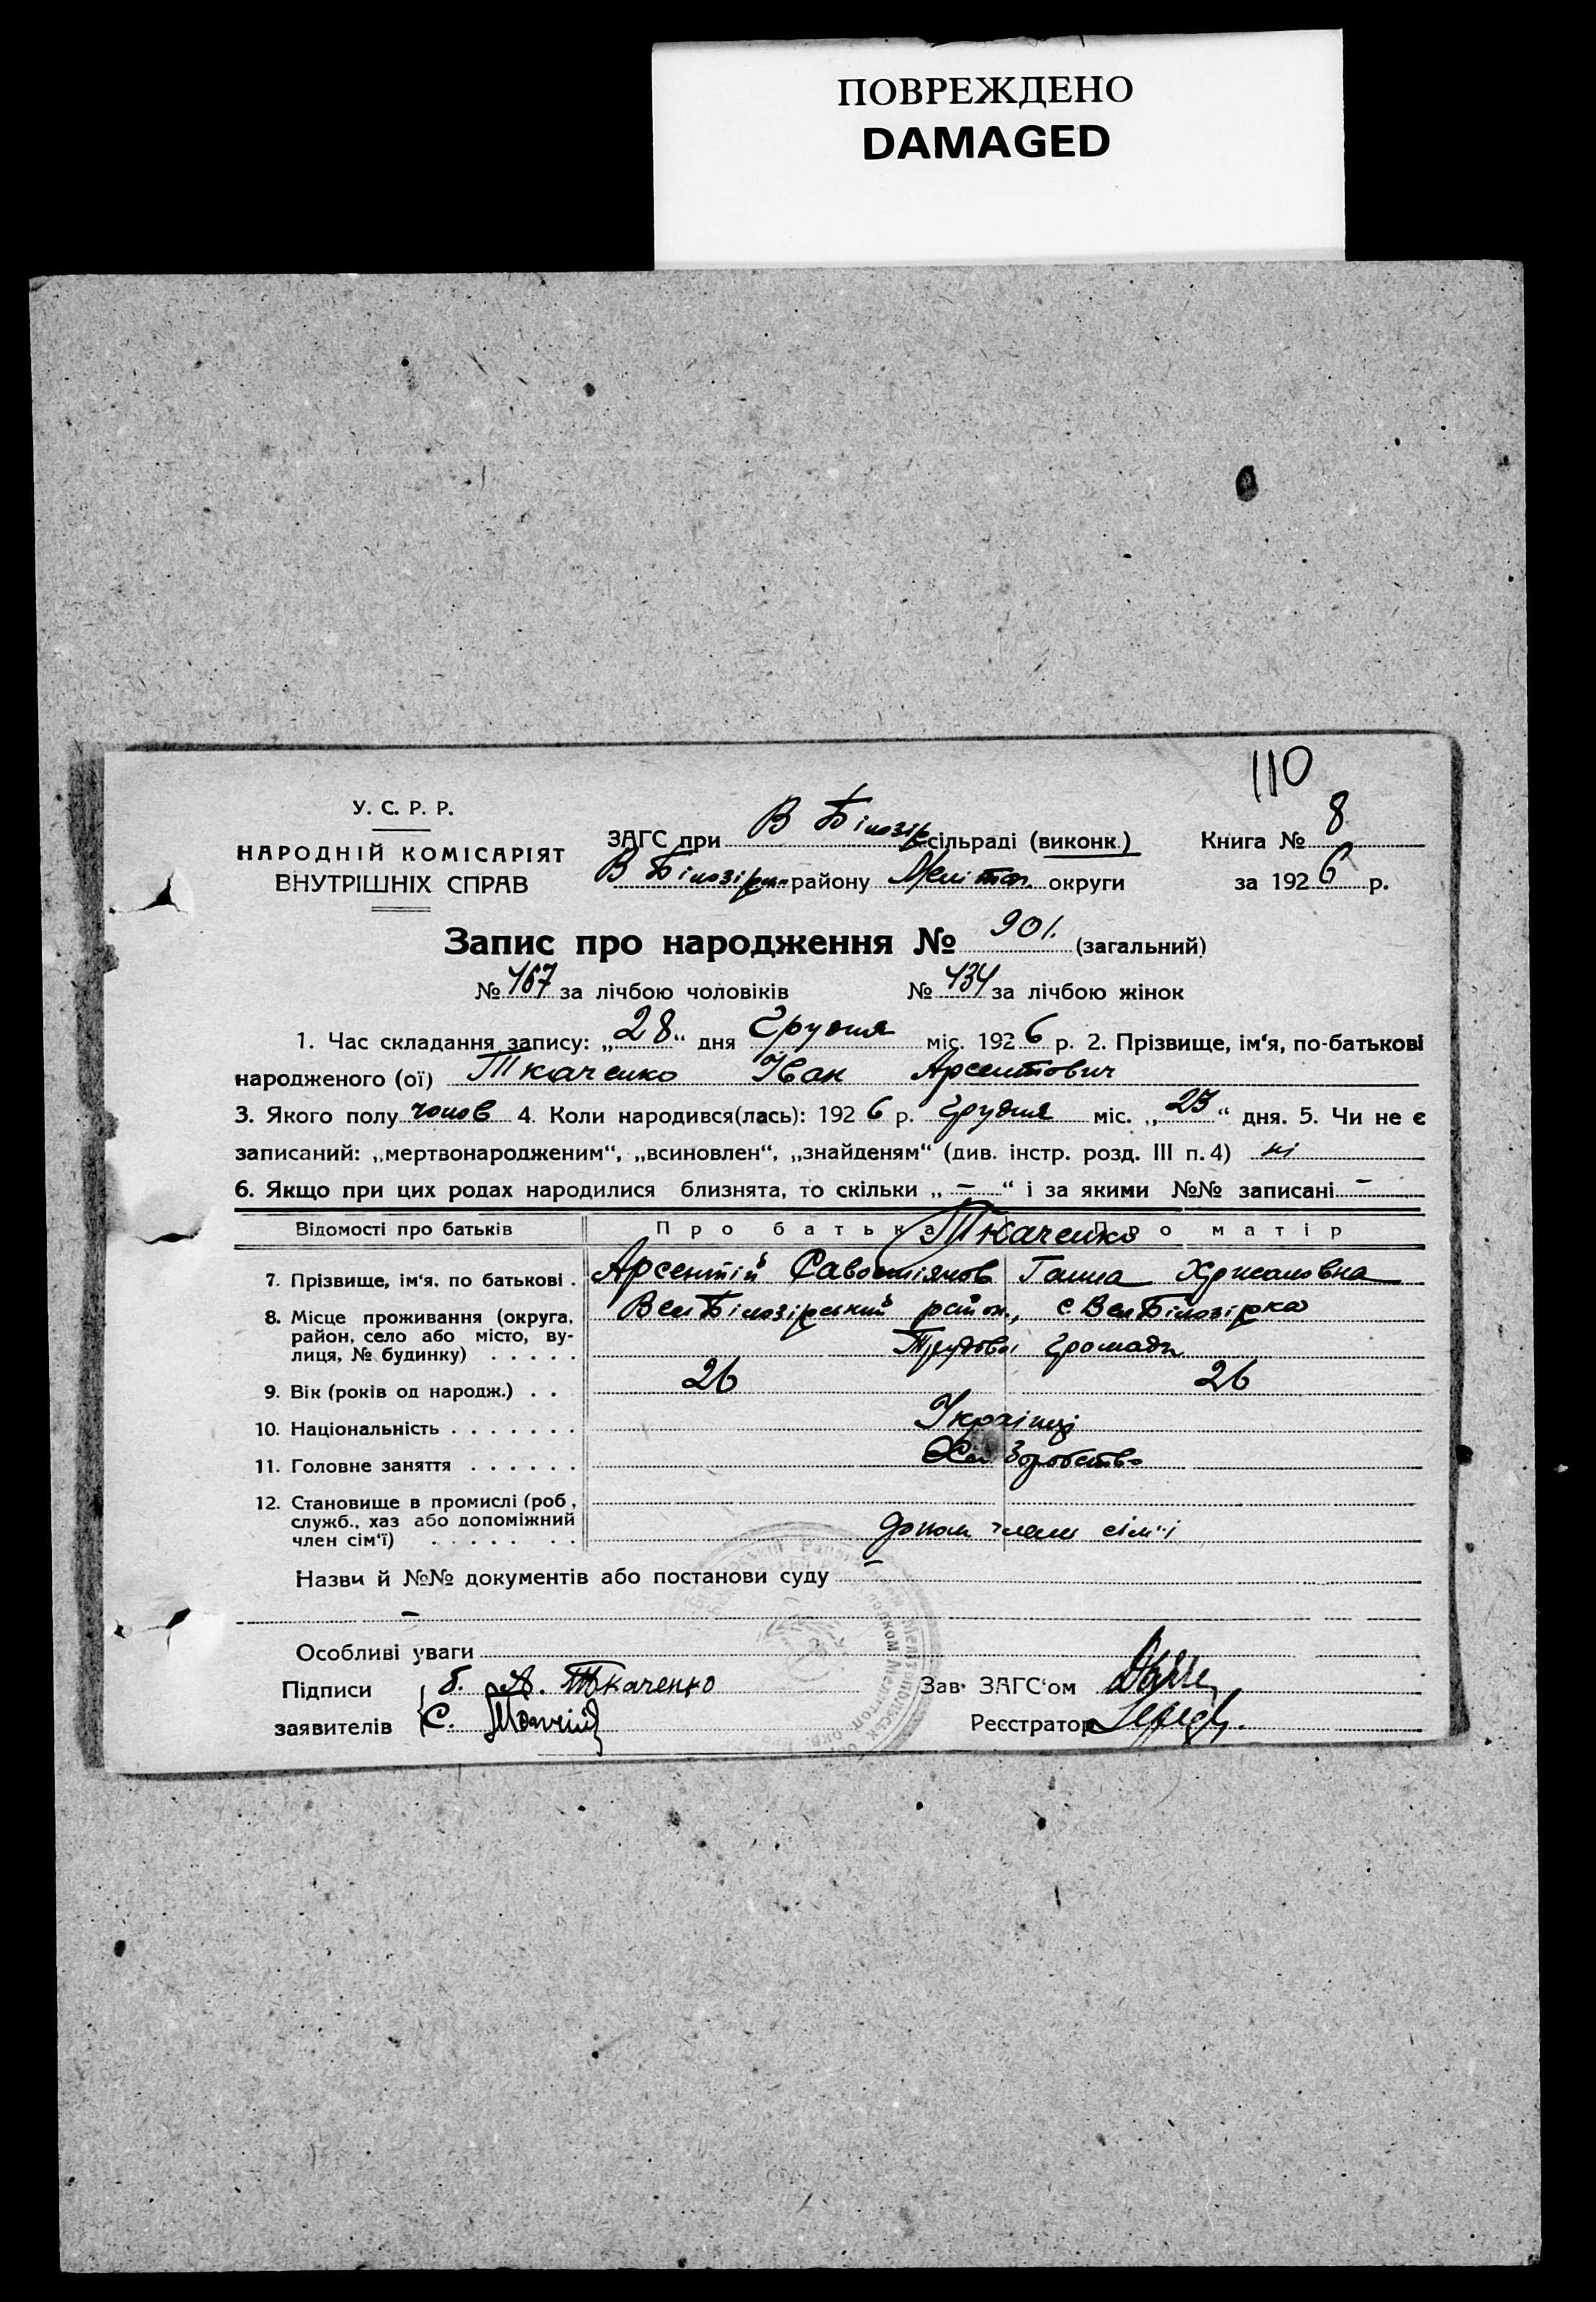 ПОВРЕЖДЕНО
DAMAGED
110
У. С. Р. Р.
НАРОДНІЙ КОМІСАРІЯТ
ВНУТРІШНІХ СПРАВ
ЗАГС при В Білозір сільраді (виконк.)
Книга № 8
В Білозір району Меліто. округи
за 1926 р.
Запис про народження № 901. (загальний)
№ 467 за лічбою чоловіків № 434 за лічбою жінок
1. Час складання запису: „28“ дня Грудня міс. 1926 р. 2. Прізвище, ім‘я, по-батькові
народженого (ої) Ткаченко Іван Арсентович
3. Якого полу чолов 4. Коли народився(лась): 1926 р. Грудня міс. „25“ дня. 5. Чи не є
записаний: „мертвонародженим“, „всиновлен“, „знайденям“ (див. інстр. розд. III п. 4) ні
6. Якщо при цих родах народилися близнята, то скільки „ – “ і за якими №№ записані –
Відомості про батьків Про батька Про матір
Ткаченко
7. Прізвище, ім‘я, по батькові . Арсентій Савостіянов Ганна
8. Місце проживання (округа, район, село або місто, ву-лиця, № будинку) . . . . . Вел Білозірський район, с. Вел Білозірка
громади
9. Вік (років од народж.) . . 26 26
10. Національність . . . . . . . Українці
11. Головне заняття . . . . . . Хліборобство
12. Становище в промислі (роб,
служб., хаз або допоміжний
член сім‘ї) . . . . . . . допом члени сім"ї
Назви й №№ документів або постанови суду –
–
Особливі уваги
Підписи б. А. Ткаченко Зав. ЗАГС‘ом
заявителів С. Реєстратор